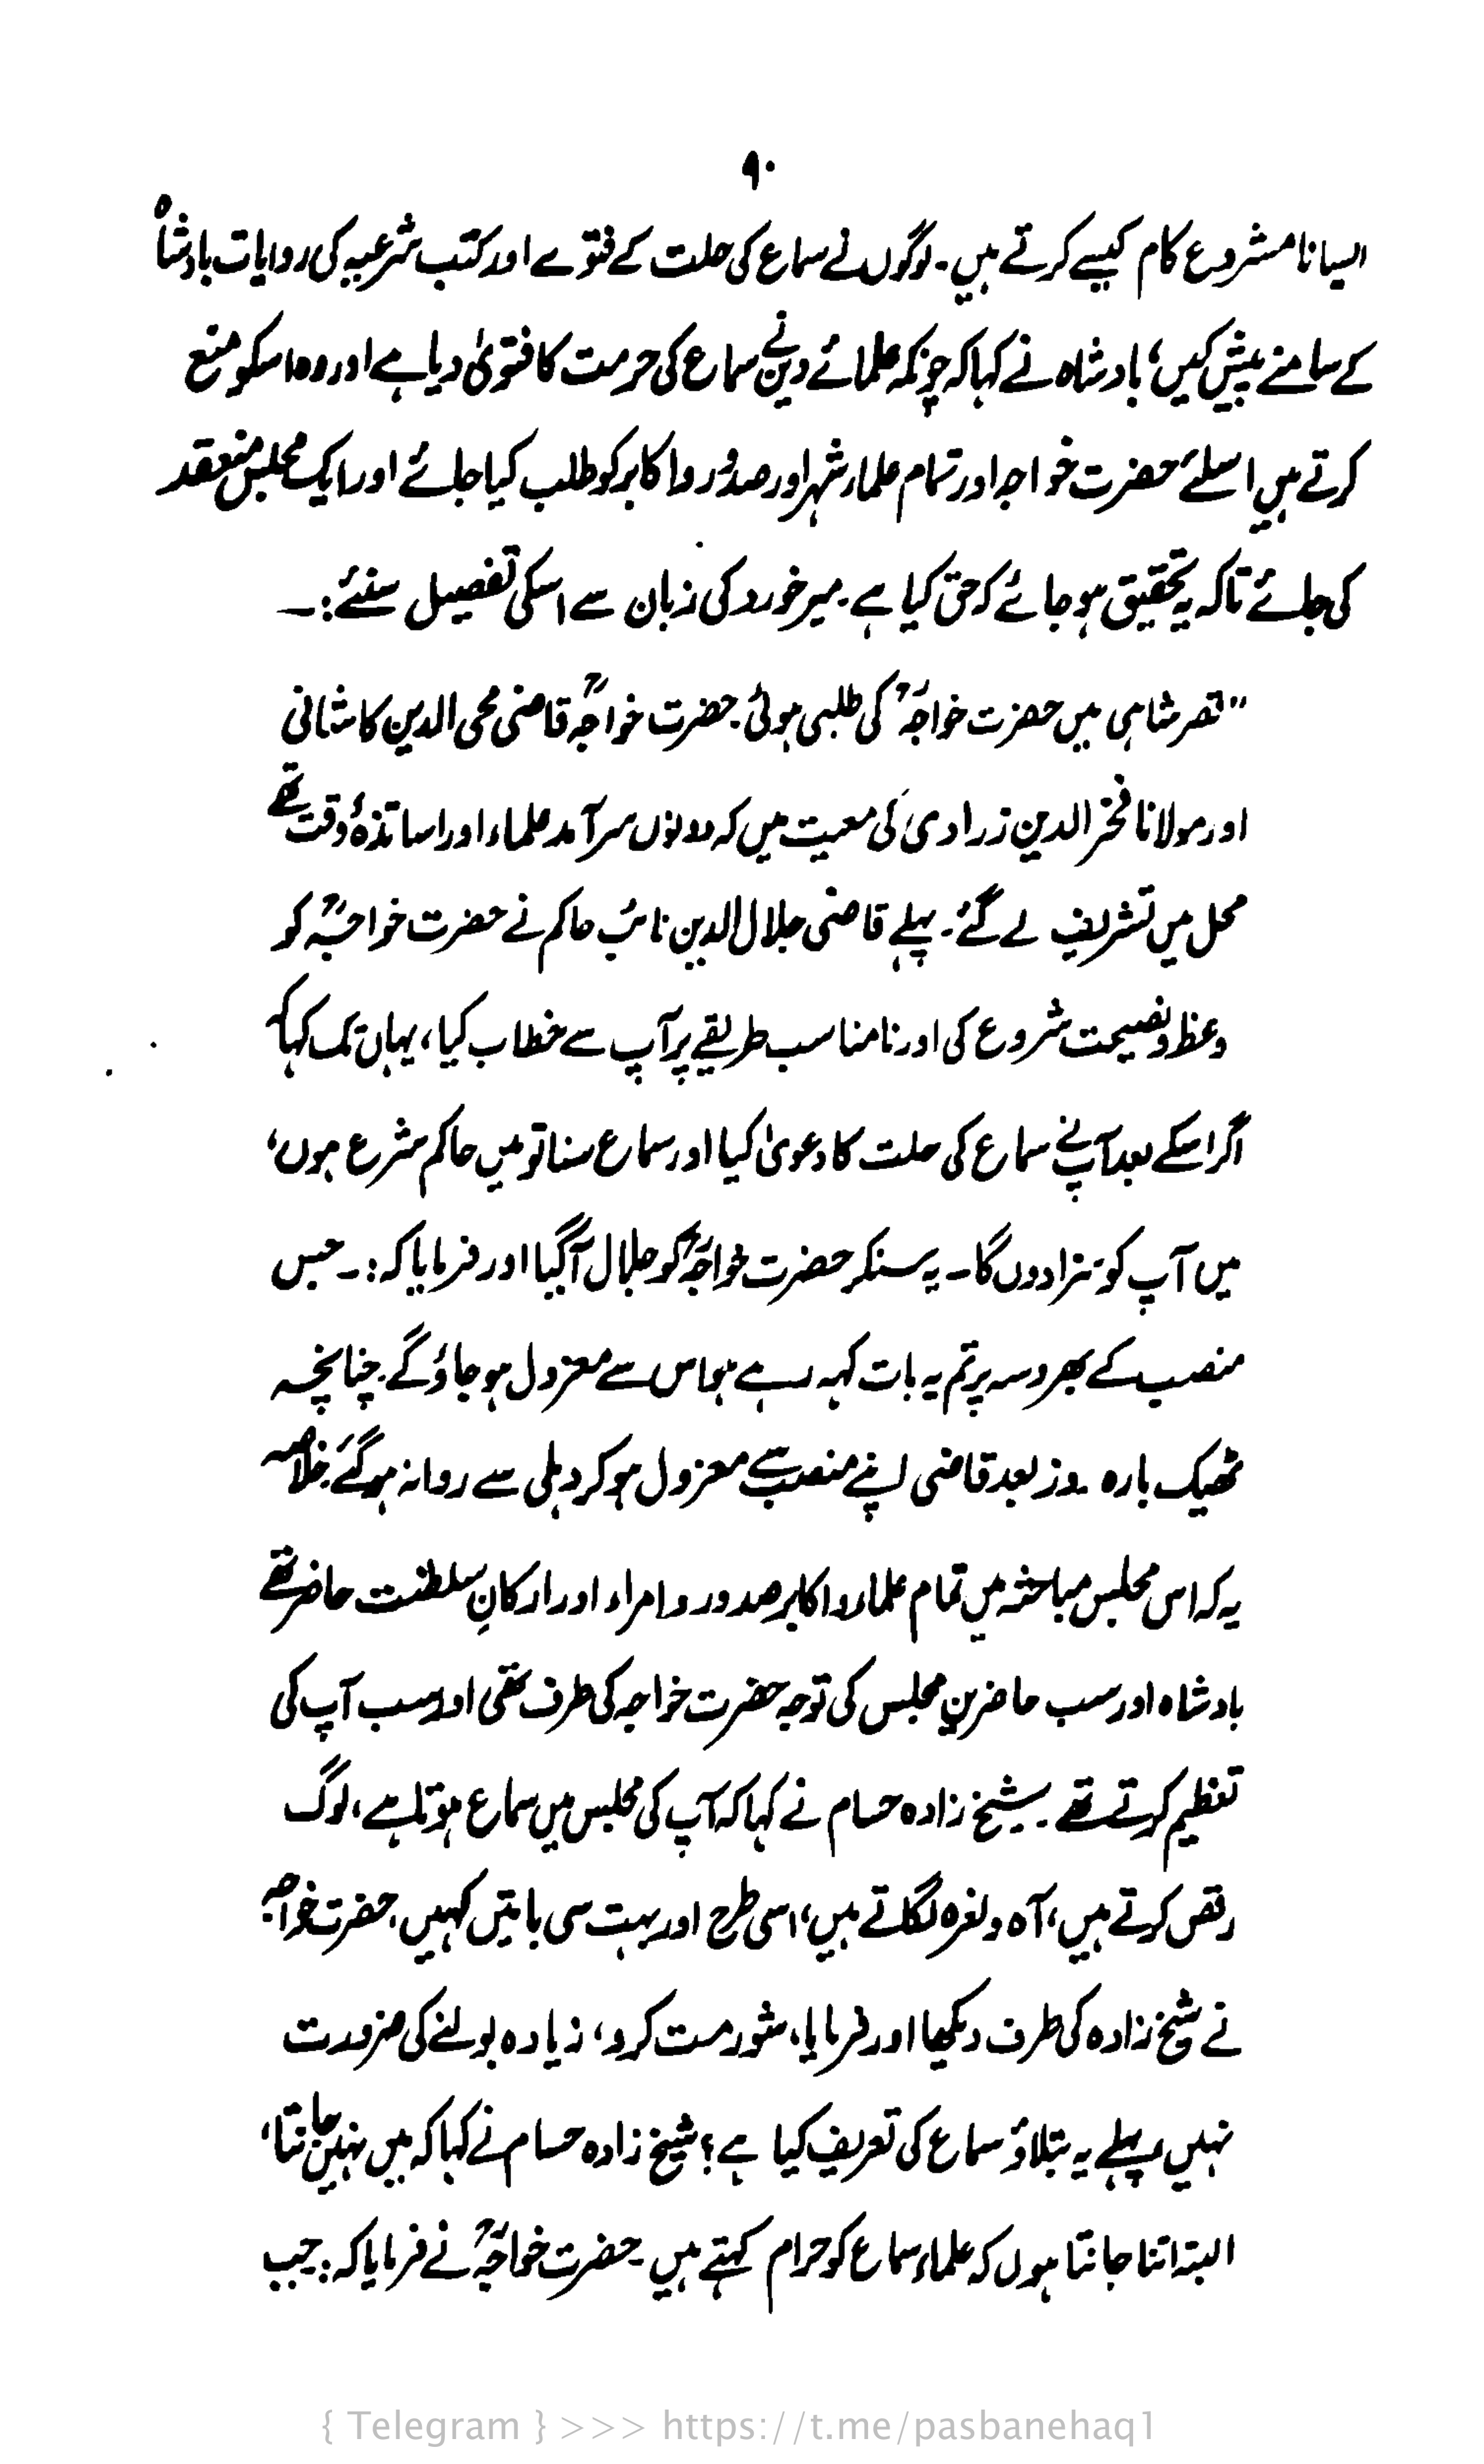 ۹۰
ایسا نامشروع کام کیسے کرتے ہیں۔ لوگوں نے سماع کی حلت کے فتوے اور کتب شرعیہ کی روایات بادشاہ
کے سامنے پیش کیں، بادشاہ نے کہا کہ چونکہ علمائے دین نے سماع کی حرمت کا فتویٰ دیا ہے اور وہ اسکو منع
کرتے ہیں اسلئے حضرت خواجہ اور تمام علماء شہر اور صدور و اکابر کو طلب کیا جائے اور ایک مجلس منعقد
کی جائے تاکہ یہ تحقیق ہو جائے کہ حق کیا ہے۔ میر خورد کی زبان سے اسکی تفصیل سنئے:۔
"قصر شاہی میں حضرت خواجہؒ کی طلبی ہوئی۔ حضرت خواجہؒ قاضی محی الدین کاشانی
اور مولانا فخر الدین زرادی کی معیت میں کہ دونوں سرآمد علماء اور اساتذۂ وقت تھے
محل میں تشریف لے گئے۔ پہلے قاضی جلال الدین نائب حاکم نے حضرت خواجہؒ کو
وعظ و نصیحت شروع کی اور نامناسب طریقے پر آپ سے خطاب کیا، یہاں تک کہا کہ
اگر اسکے بعد آپ نے سماع کی حلت کا دعویٰ کیا اور سماع سنا تو میں حاکم شرع ہوں،
میں آپ کو سزا دوں گا۔ یہ سنکر حضرت خواجہؒ کو جلال آگیا اور فرمایا کہ:۔ جس
منصب کے بھروسہ پر تم یہ بات کہہ رہے ہو اس سے معزول ہو جاؤ گے۔ چنانچہ
ٹھیک بارہ روز بعد قاضی اپنے منصب سے معزول ہو کر دہلی سے روانہ ہو گئے۔ خلاصہ
یہ کہ اس مجلس مباحثہ میں تمام علماء و اکابر صدور و امراء اور ارکانِ سلطنت حاضر تھے
بادشاہ اور سب حاضرینِ مجلس کی توجہ حضرت خواجہ کی طرف تھی اور سب آپ کی
تعظیم کرتے تھے۔ شیخ زادہ حسام نے کہا کہ آپ کی مجلس میں سماع ہوتا ہے، لوگ
رقص کرتے ہیں، آہ و نعرہ لگاتے ہیں، اسی طرح اور بہت سی باتیں کہیں۔ حضرت خواجہ
نے شیخ زادہ کی طرف دیکھا اور فرمایا، شور مت کرو، زیادہ بولنے کی ضرورت
نہیں، پہلے یہ بتلاؤ سماع کی تعریف کیا ہے؟ شیخ زادہ حسام نے کہا کہ میں نہیں جانتا،
البتہ اتنا جانتا ہوں کہ علماء سماع کو حرام کہتے ہیں۔ حضرت خواجہؒ نے فرمایا کہ: جب
{ Telegram } >>> https://t.me/pasbanehaq1